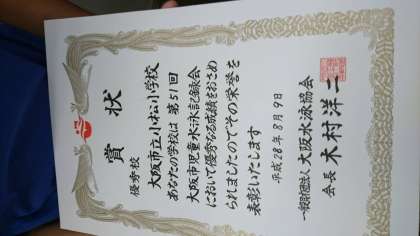 賞状
優秀校
大阪市立小松小学校
あなたの学校は第51回
大阪市児童水泳記録会
において優秀なる成績をおさめ
られましたのでその栄誉を
表彰いたします
平成28年8月9日
一般財団法人大阪水泳協会
会長 木村洋二